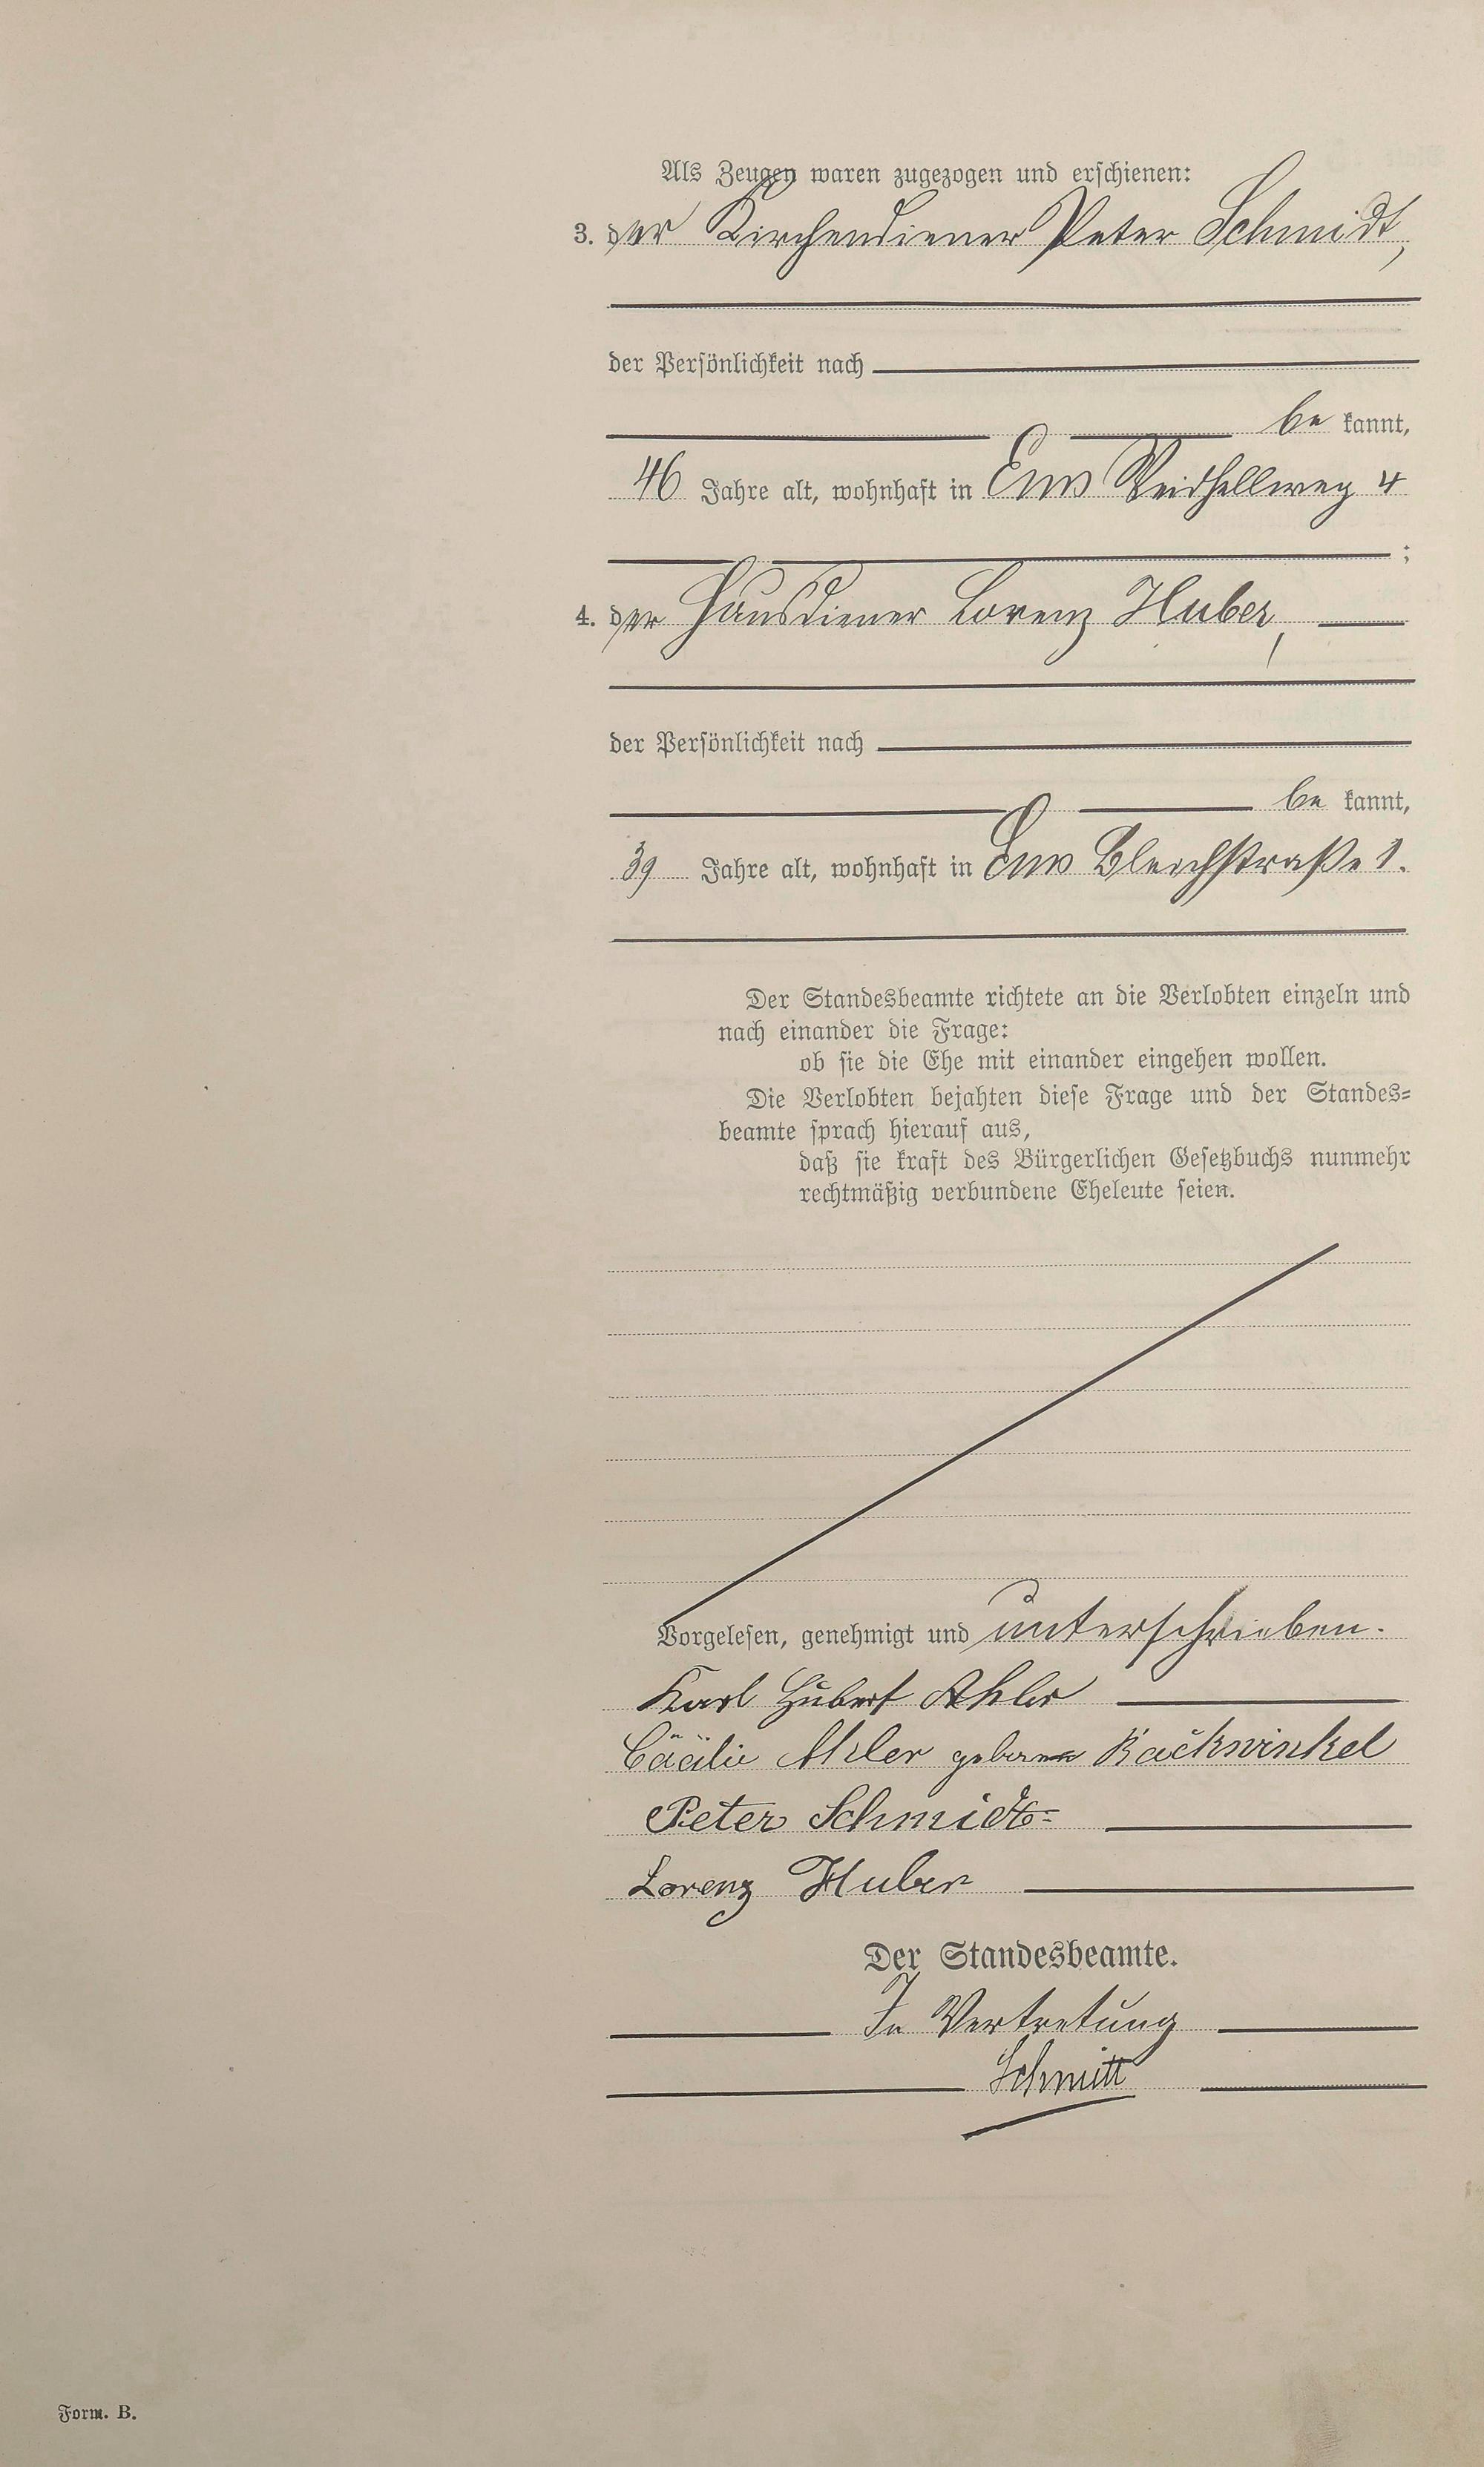 Als Zeugen waren zugezogen und erschienen:
3. der Kirchendiener Peter Schmidt,
der Persönlichkeit nach
be kannt,
46 Jahre alt, wohnhaft in Ems 4
;
4. der Hausdiener Lorenz Huber,
der Persönlichkeit nach
be kannt,
39 Jahre alt, wohnhaft in Ems Bleichstraße 1.
Der Standesbeamte richtete an die Verlobten einzeln und
nach einander die Frage:
ob sie die Ehe mit einander eingehen wollen.
Die Verlobten bejahten diese Frage und der Standes=
beamte sprach hierauf aus,
daß sie kraft des Bürgerlichen Gesetzbuchs nunmehr
rechtmäßig verbundene Eheleute seien.
Vorgelesen, genehmigt und unterschrieben.
Karl Hubert Ahler
Cäcilie Ahler geborene Backwinkel
Peter Schmidt
Lorenz Huber
Der Standesbeamte.
In Vertretung
Schmitt
Form. B.